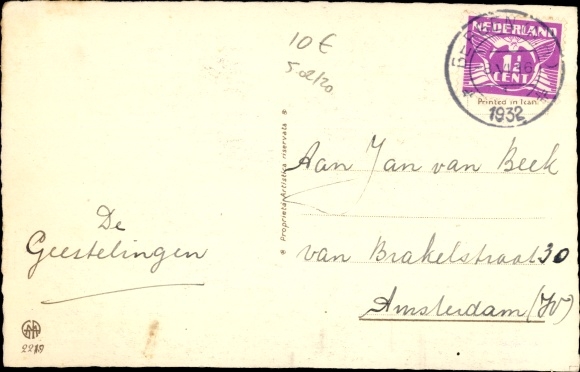 10 €
5 02/20
NEDERLAND
1½
CENT
Printed in Iran
1932
Proprietà Artistica riservata
Aan Jan van Beek
van Brakelstraat 30
Amsterdam (W)
De
Geestelingen
2219